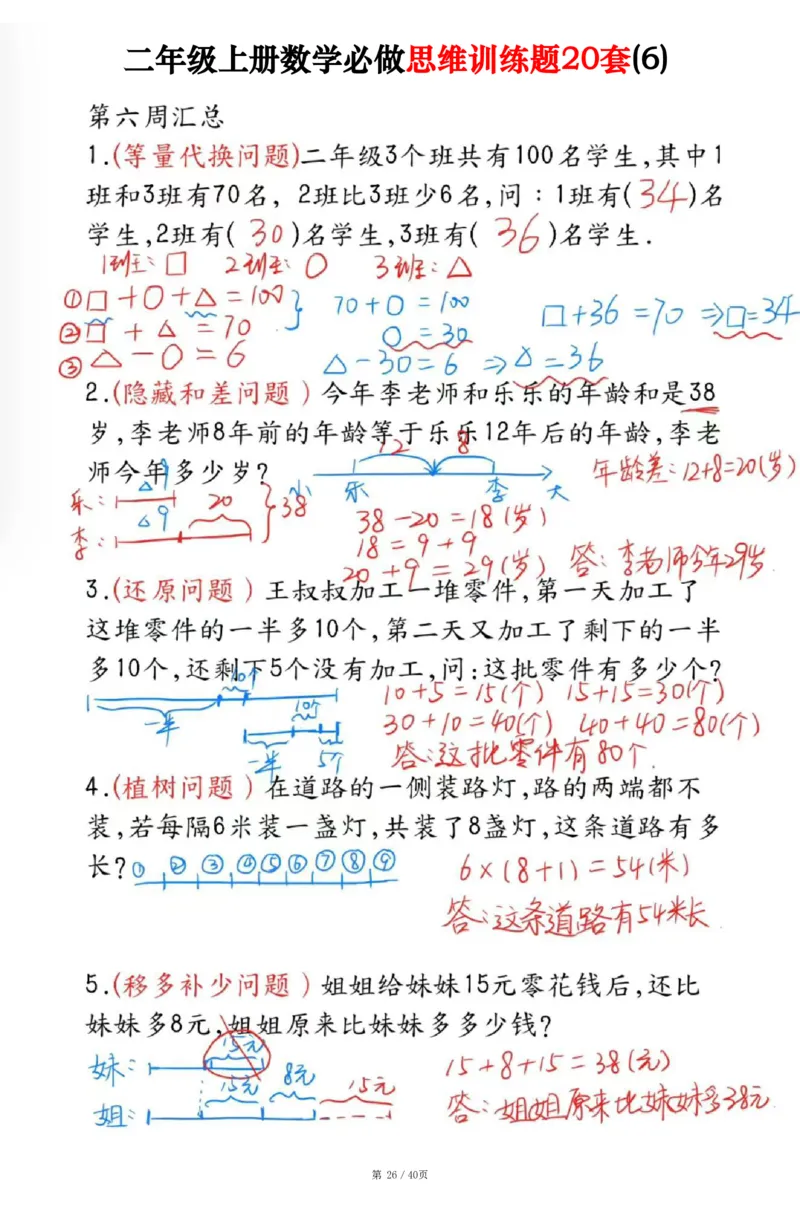 二年级上册数学必做思维训练题20套(6)
第六周汇总
1.(等量代换问题)二年级3个班共有100名学生,其中1
班和3班有70名, 2班比3班少6名,问:1班有(34)名
学生,2班有( 30 )名学生,3班有( 36 )名学生.
1班:□ 2班:○ 3班:△
①□+○+△=100
70+○=100
□+36=70⇒□=34
②□+△=70
○=30
③△-○=6
△-30=6⇒△=36
2.(隐藏和差问题)今年李老师和乐乐的年龄和是38
岁,李老师8年前的年龄等于乐乐12年后的年龄,李老
12 8
师今年多少岁?
年龄差:12+8=20(岁)
小 乐 李 大
△9
乐:
20
38
△9
李:
38-20=18(岁)
18=9+9
20+9=29(岁)
答:李老师今年29岁
3.(还原问题)王叔叔加工一堆零件,第一天加工了
这堆零件的一半多10个,第二天又加工了剩下的一半
多10个,还剩下5个没有加工,问:这批零件有多少个?
10个
10+5=15(个) 15+15=30(个)
一半 10个
30+10=40(个) 40+40=80(个)
一半 5个
答:这批零件有80个.
4.(植树问题)在道路的一侧装路灯,路的两端都不
装,若每隔6米装一盏灯,共装了8盏灯,这条道路有多
长?
① ② ③ ④ ⑤ ⑥ ⑦ ⑧ ⑨
6×(8+1)=54(米)
答:这条道路有54米长.
5.(移多补少问题)姐姐给妹妹15元零花钱后,还比
妹妹多8元,姐姐原来比妹妹多多少钱?
15元
妹:
15+8+15=38(元)
15元 8元 15元
姐:
答:姐姐原来比妹妹多38元.
第 26 / 40页